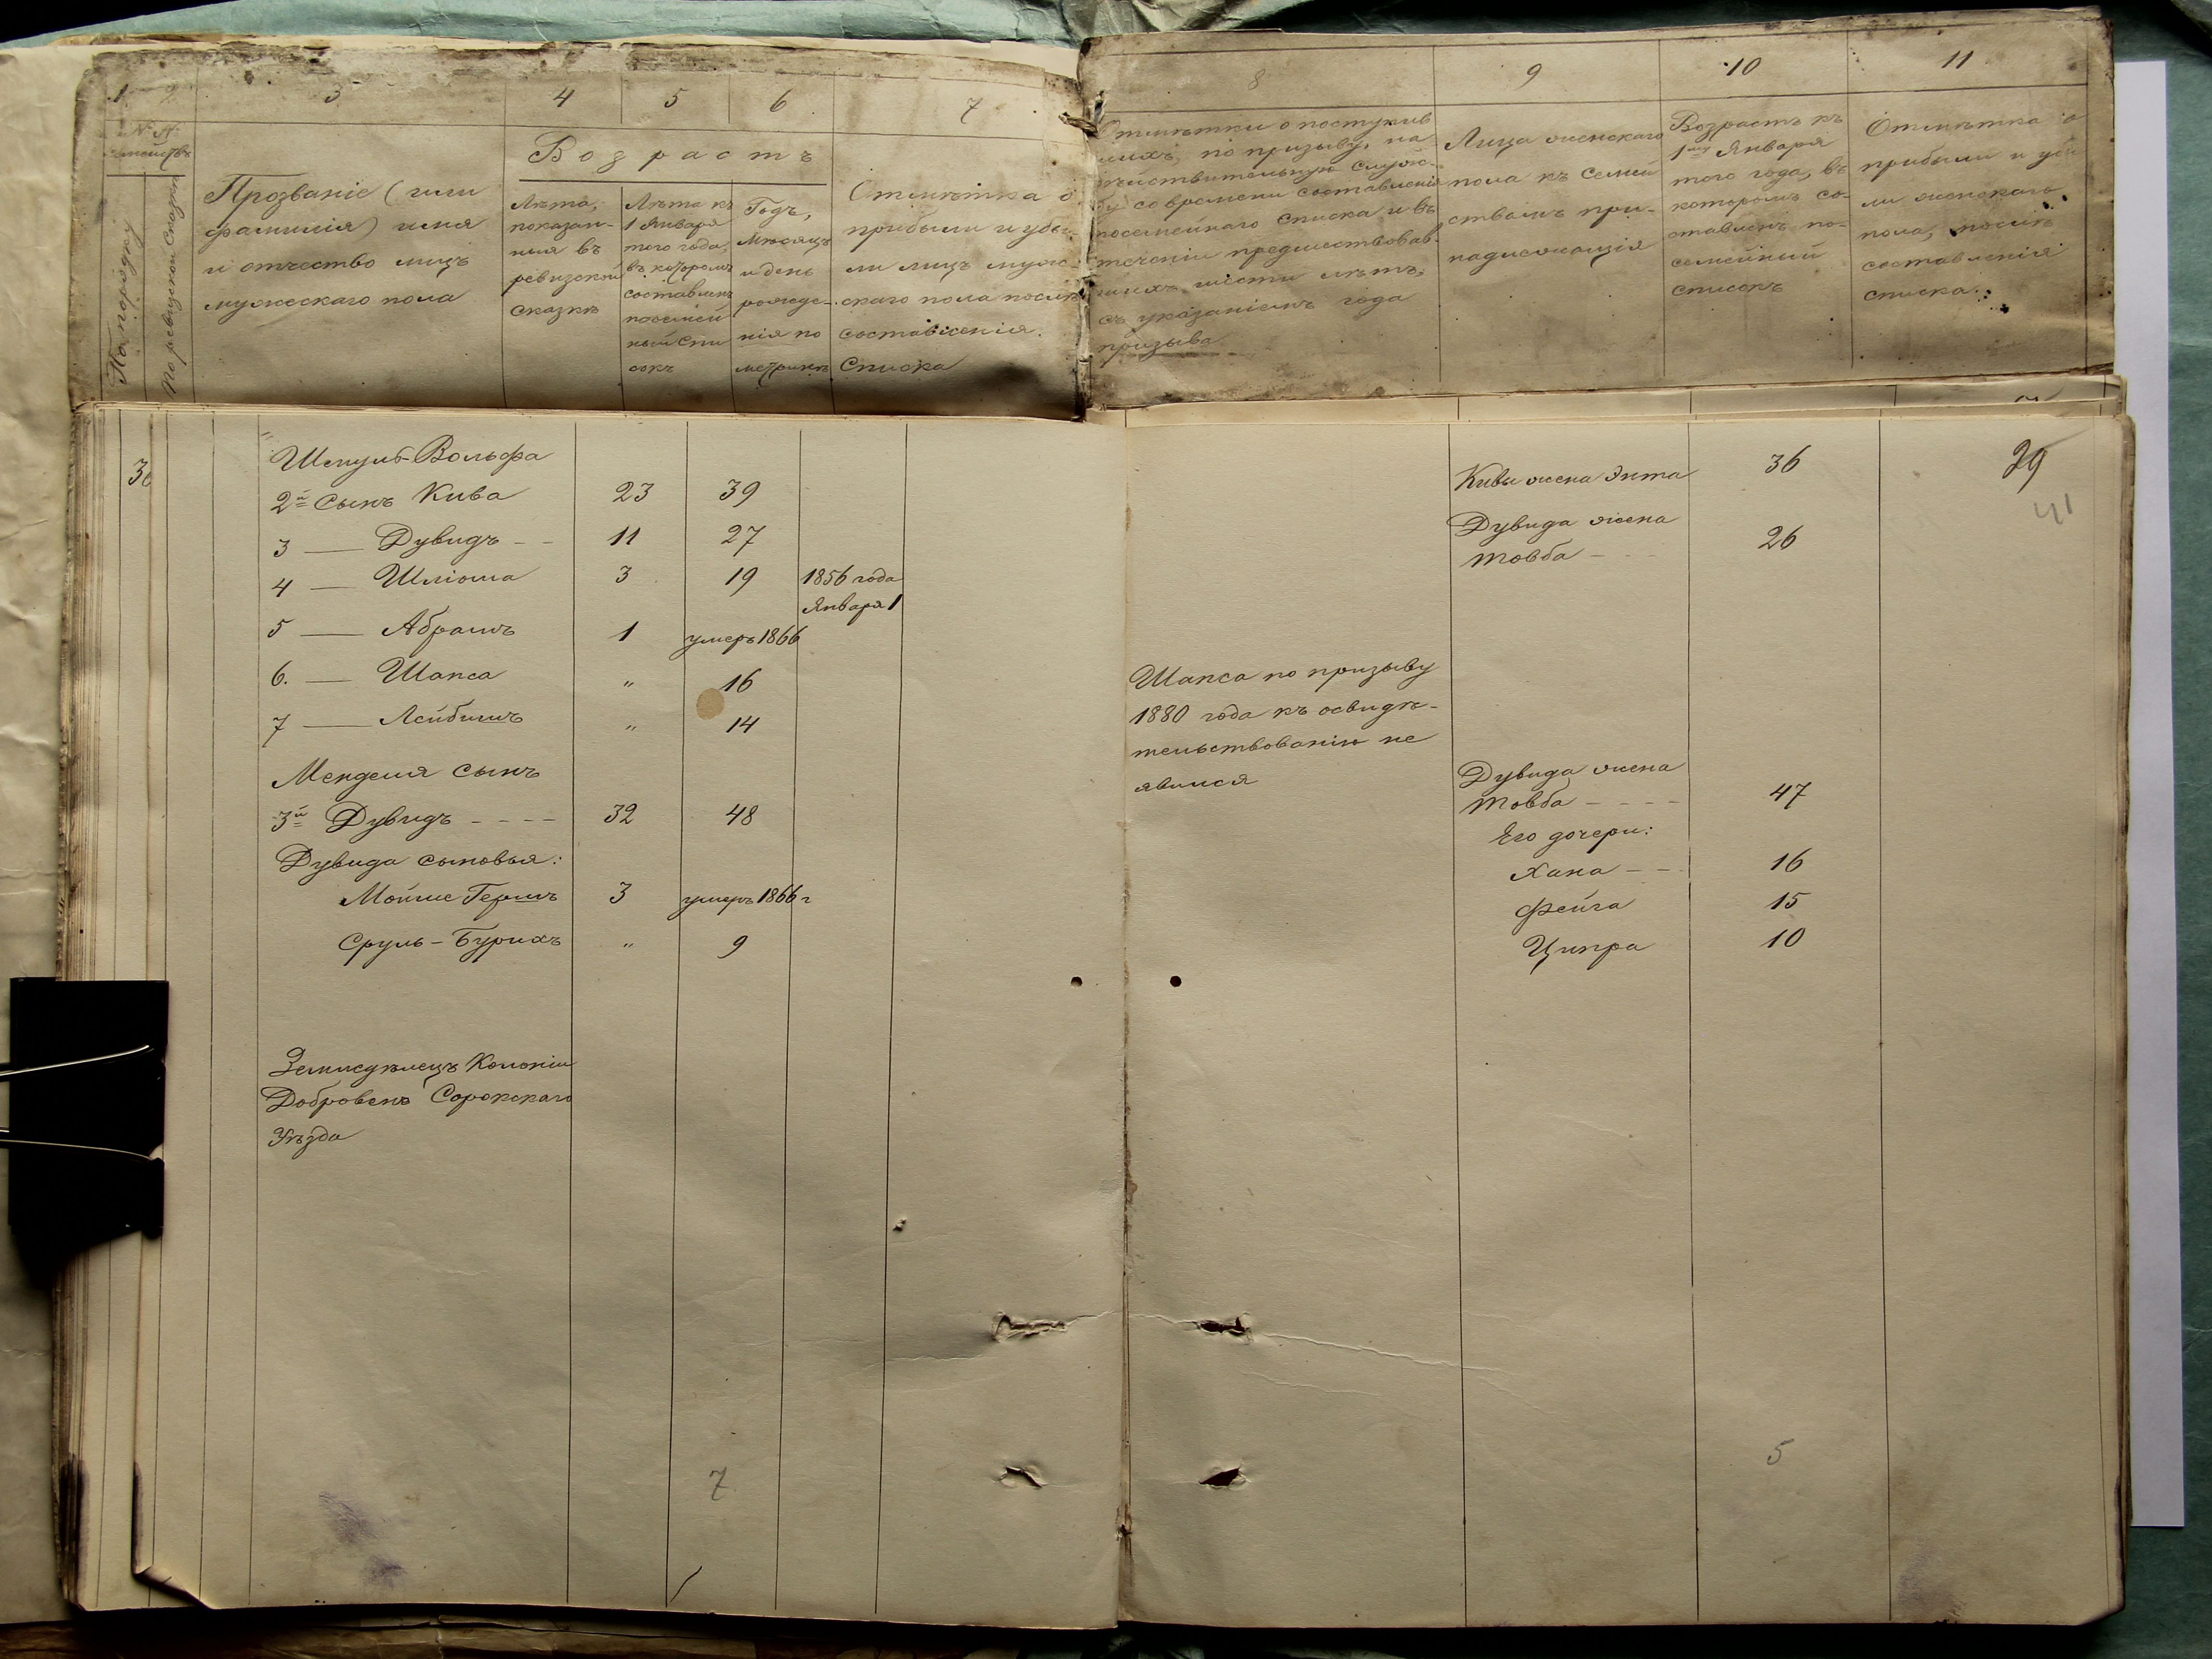 1 2 3 4 5 6 7
№ №
семействъ
По порядку
По ревизской сказкѣ
Прозваніе (или
фамилія) имя
и отчество лицъ
мужескаго пола
Возрастъ
Лѣта,
показан-
ныя въ
ревизской
сказкѣ
Лѣта къ
1 Января
того года,
въ которомъ
составленъ
посемей
ный спи
сокъ
Годъ,
мѣсяцъ
и день
рожде-
нія по
метрикѣ
Отмѣтка о
прибыли и убы
ли лицъ муже-
скаго пола послѣ
составленія
списка
8 9 10 11
Отмѣтки о поступив
шихъ, по призыву, на
дѣйствительную служ-
бу со времени составленія
посемейнаго списка и въ
теченіи предшествовав-
шихъ шести лѣтъ,
съ указаніемъ года
призыва
Лица женскаго
пола къ семей
ствамъ при-
надлежащія
Возрастъ къ
1му Января
того года, въ
которомъ со-
ставленъ по-
семейный
списокъ
Отмѣтка о
прибыли и убы
ли женскаго
пола, послѣ
составленія
списка
Шмуль-Вольфа
2й сынъ Кива 23 39
3 — Дувидъ -- 11 27
4 — Шліома 3 19 1856 года
Января 1
5 — Абрамъ 1 умеръ 1866
6. — Шапса " 16
7 — Лейбишъ " 14
Менделя сынъ
3й Дувидъ ---- 32 48
Дувида сыновья:
Мойше Гершъ 3 умеръ 1866 г
Сруль-Бурихъ " 9
Земледѣлецъ Колоніи
Добровенъ Сорокскаго
Уѣзда
7
Кивы жена Энта 36
29
41
Дувида жена
Товба --- 26
Шапса по призыву
1880 года къ освидѣ-
тельствованію не
явился
Дувида жена
Товба ---- 47
Его дочери:
Хана -- 16
Фейга 15
Ципра 10
5